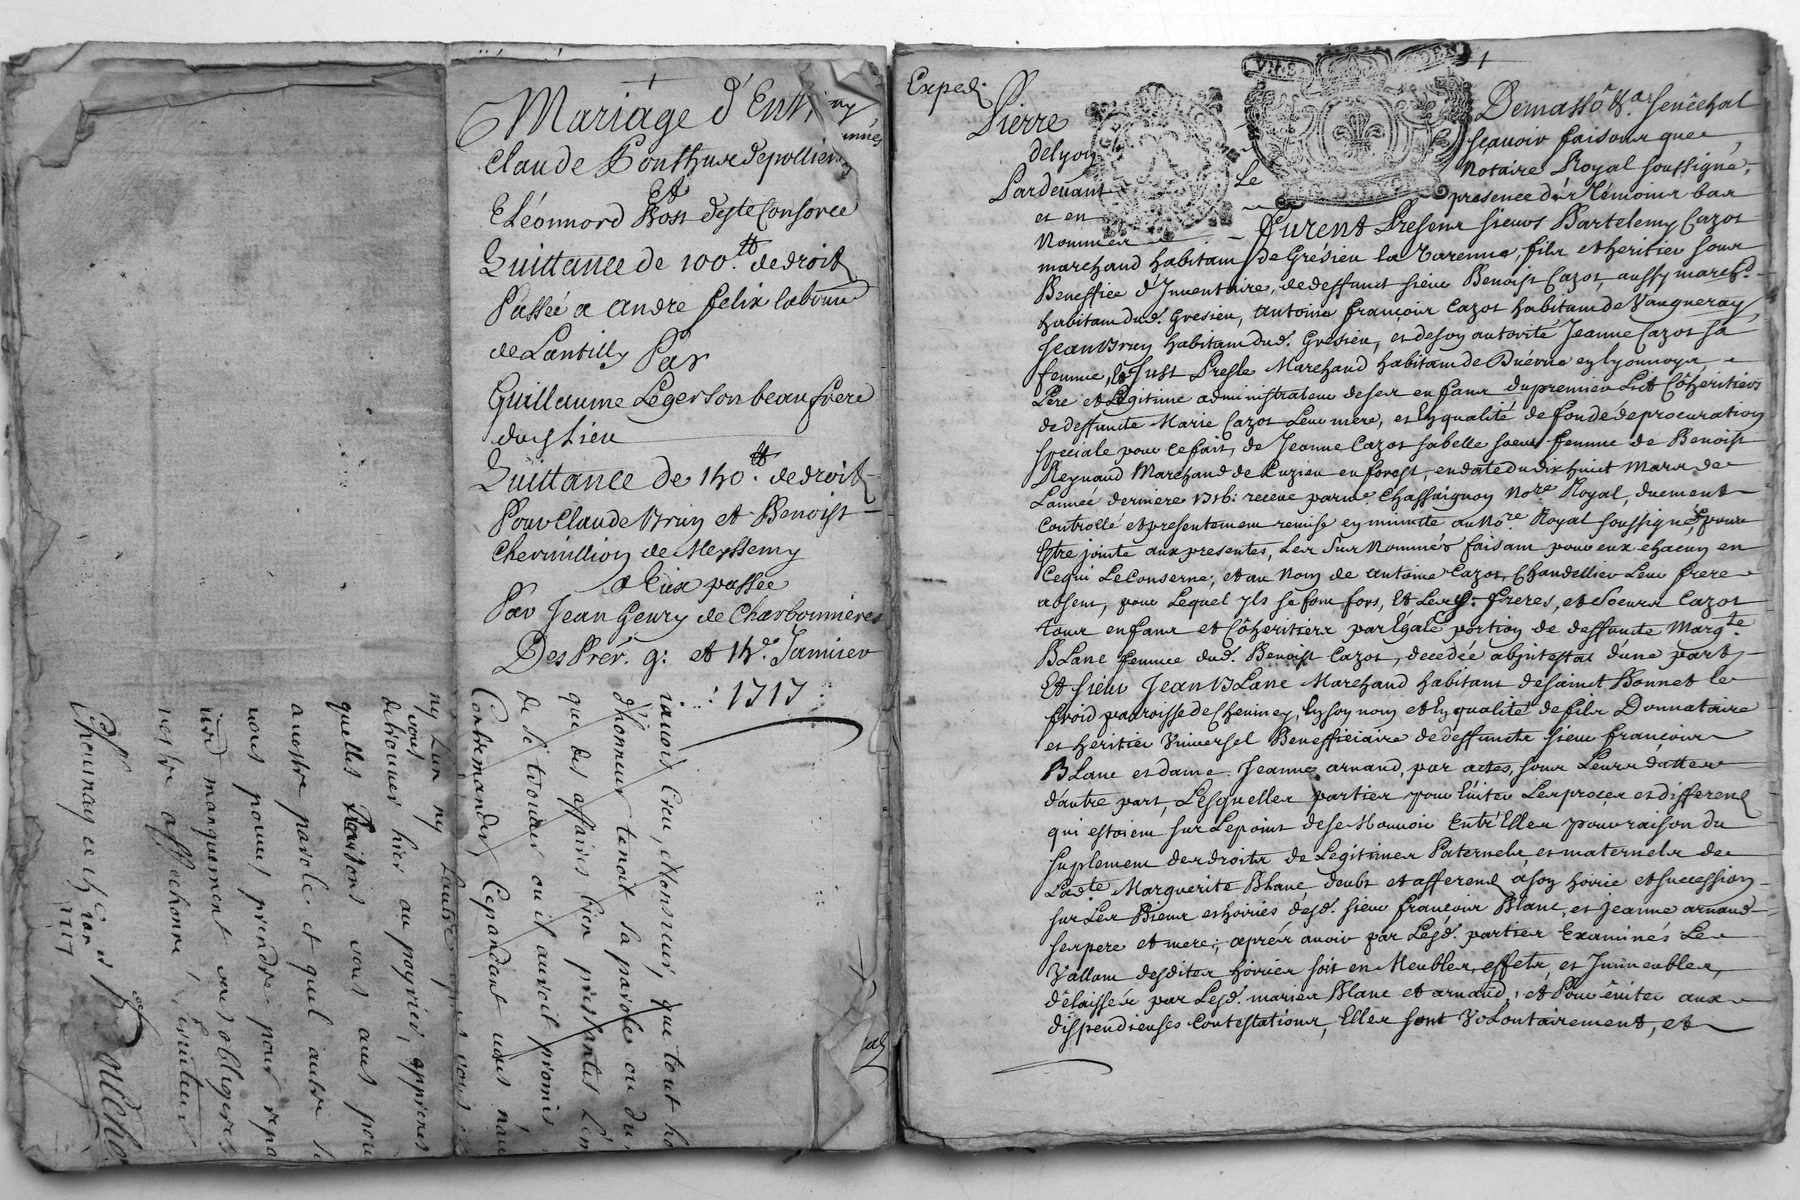 Mariage d'Ent
Claude Ponthus depollien
Et
Eléonnord Bost dyste Consorce
Quittance de 100.tt de droit
Passée a andre felix labrune
de Lantilly Par
Guillaume Leger son beaufrere
dud Lieu
Quittance de 140.tt de droit
Pour Claude Brun et Benoist
Chermillion de Meyssemy
a Eux passée
Par Jean Geury de Charbonnieres
Des Prér. 9: et 14e. Janvier
: 1717 :
jaurois Creu, Monsieur, que tout ho
d'honneur tenoit sa parole ou du
que des affaires bien pressantes L'em
de se trouver ou il auroit promis
Contremander, Cependant nous n'au
ny Lun ny Lautre
vous
debiouer hier au poyries, apprenes
quelles Raisons vous aves pou
a vostre parole et quel autre
vous pouves prendre pour repa
manquement vous obligeres
vostre affectionné serviteur
Chevinay ce
1717
Exped.
Pierre Demasso &a Senéchal
delyon sçauoir faisons que
Pardeuant Le Notaire Royal soussigné,
et en presence des Témoins bas
Nommer Furent Presens sieurs Bartelemy Cazot
marchand habitant de Grésieu la Varenne, fils et heritier sous
Beneffice d'Inuentaire, de deffunct sieur Benoist Cazot, aussy march.d
habitant dud. Gresieu, antoine françois Cazot habitant de Vaugneray,
Jean Brun habitant dud. Gresieu, et de son autorité Jeanne Cazot sa
femme, Et Just Presle Marchand habitant de Duerne en lyonnois,
Pere et Legitime administrateur de ses enfans du premier Lict Cõheritiers
de deffuncte Marie Cazot Leur mere, et En qualité de fondé de procuration
speciale pour ce fait, de Jeanne Cazot sa belle soeur femme de Benoist
Reynaud Marchand de Cuzieu en forest, en datte du dix huict Mars de
L'année derniere 1716: receue par me. Chassaignon No.re Royal, duement
Controllé et presentement remise en minutte au No.re Royal soussigné, pour
Estre jointe aux presentes, Les Sus Nommés faisant pour eux chacun en
Cequi Le Conserne, et au Nom de antoine Cazot, Chandellier Leur frere
absent, pour Lequel Ils se font fors, Et Lesd. freres, et Soeurs Cazot
tous enfans et Cõheritiers par Egale portion de deffuncte Marg.te
BLanc femme dud. Benoist Cazot, decedée abintestat d'une part,
Et sieur Jean BLanc Marchand habitant de Sainct Bonnet le
froid parroisse de Cheuiney, En son nom et En qualité de fils Donnataire
et heritier Vniversel Benefficiaire de deffuncts sieur François
BLanc et dame Jeanne arnaud, par actes, sous Leurs dattes
d'autre part, Lesquelles parties pour Euiter Les procez et differend
qui estoient sur Le point de se Mouuoir Entr'Elles pour raison du
suplement des droits de Legitimes Paternels, et maternels de
Lad.te Marguerite Blanc deubs et afferend a son hoirie et succession
sur Les Biens et hoiries desd. sieur françois Blanc, et Jeanne arnaud
ses pere et mere; aprés auoir par Lesd. parties Examinés Les
Vallans desdites hoiries soit en Meubles, effets, et Immeubles,
délaissés par Lesd. mariés Blanc et arnaud, et Pour éuiter aux
dispendieuses Contestations, Elles sont Volontairement, et